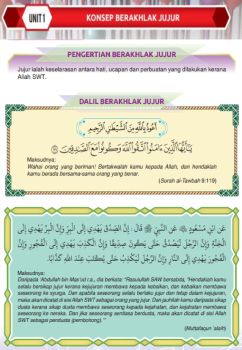 UNIT 1
KONSEP BERAKHLAK JUJUR
PENGERTIAN BERAKHLAK JUJUR
Jujur ialah keselarasan antara hati, ucapan dan perbuatan yang dilakukan kerana
Allah SWT.
DALIL BERAKHLAK JUJUR
أَعُوذُ بِاللَّهِ مِنَ الشَّيْطَانِ الرَّجِيمِ
يَا أَيُّهَا الَّذِينَ ءَامَنُوا اتَّقُوا اللَّهَ وَكُونُوا مَعَ الصَّادِقِينَ
Maksudnya:
Wahai orang yang beriman! Bertakwalah kamu kepada Allah, dan hendaklah
kamu berada bersama-sama orang yang benar.
(Surah al-Tawbah 9:119)
عَنِ ابْنِ مَسْعُودٍ عَنِ النَّبِيِّ ﷺ قَالَ : إِنَّ الصِّدْقَ يَهْدِي إِلَى الْبِرِّ وَإِنَّ الْبِرَّ يَهْدِي إِلَى
الْجَنَّةِ وَإِنَّ الرَّجُلَ لَيَصْدُقُ حَتَّى يَكُونَ صِدِّيقًا وَإِنَّ الْكَذِبَ يَهْدِي إِلَى الْفُجُورِ وَإِنَّ
الْفُجُورَ يَهْدِي إِلَى النَّارِ وَإِنَّ الرَّجُلَ لَيَكْذِبُ حَتَّى يُكْتَبَ عِنْدَ اللَّهِ كَذَّابًا.
Maksudnya:
Daripada Abdullah bin Mas'ud r.a., dia berkata: "Rasulullah SAW bersabda, "Hendaklah kamu
selalu bersikap jujur kerana kejujuran membawa kepada kebaikan, dan kebaikan membawa
seseorang ke syurga. Dan apabila seseorang selalu berlaku jujur dan tetap dalam kejujuran,
maka akan dicatat di sisi Allah SWT sebagai orang yang jujur. Dan jauhilah kamu daripada sikap
dusta kerana sikap dusta membawa seseorang kepada kejahatan, dan kejahatan membawa
seseorang ke neraka. Dan jika seseorang sentiasa berdusta, maka akan dicatat di sisi Allah
SWT sebagai pendusta (pembohong)."
(Muttafaqun 'alaih)